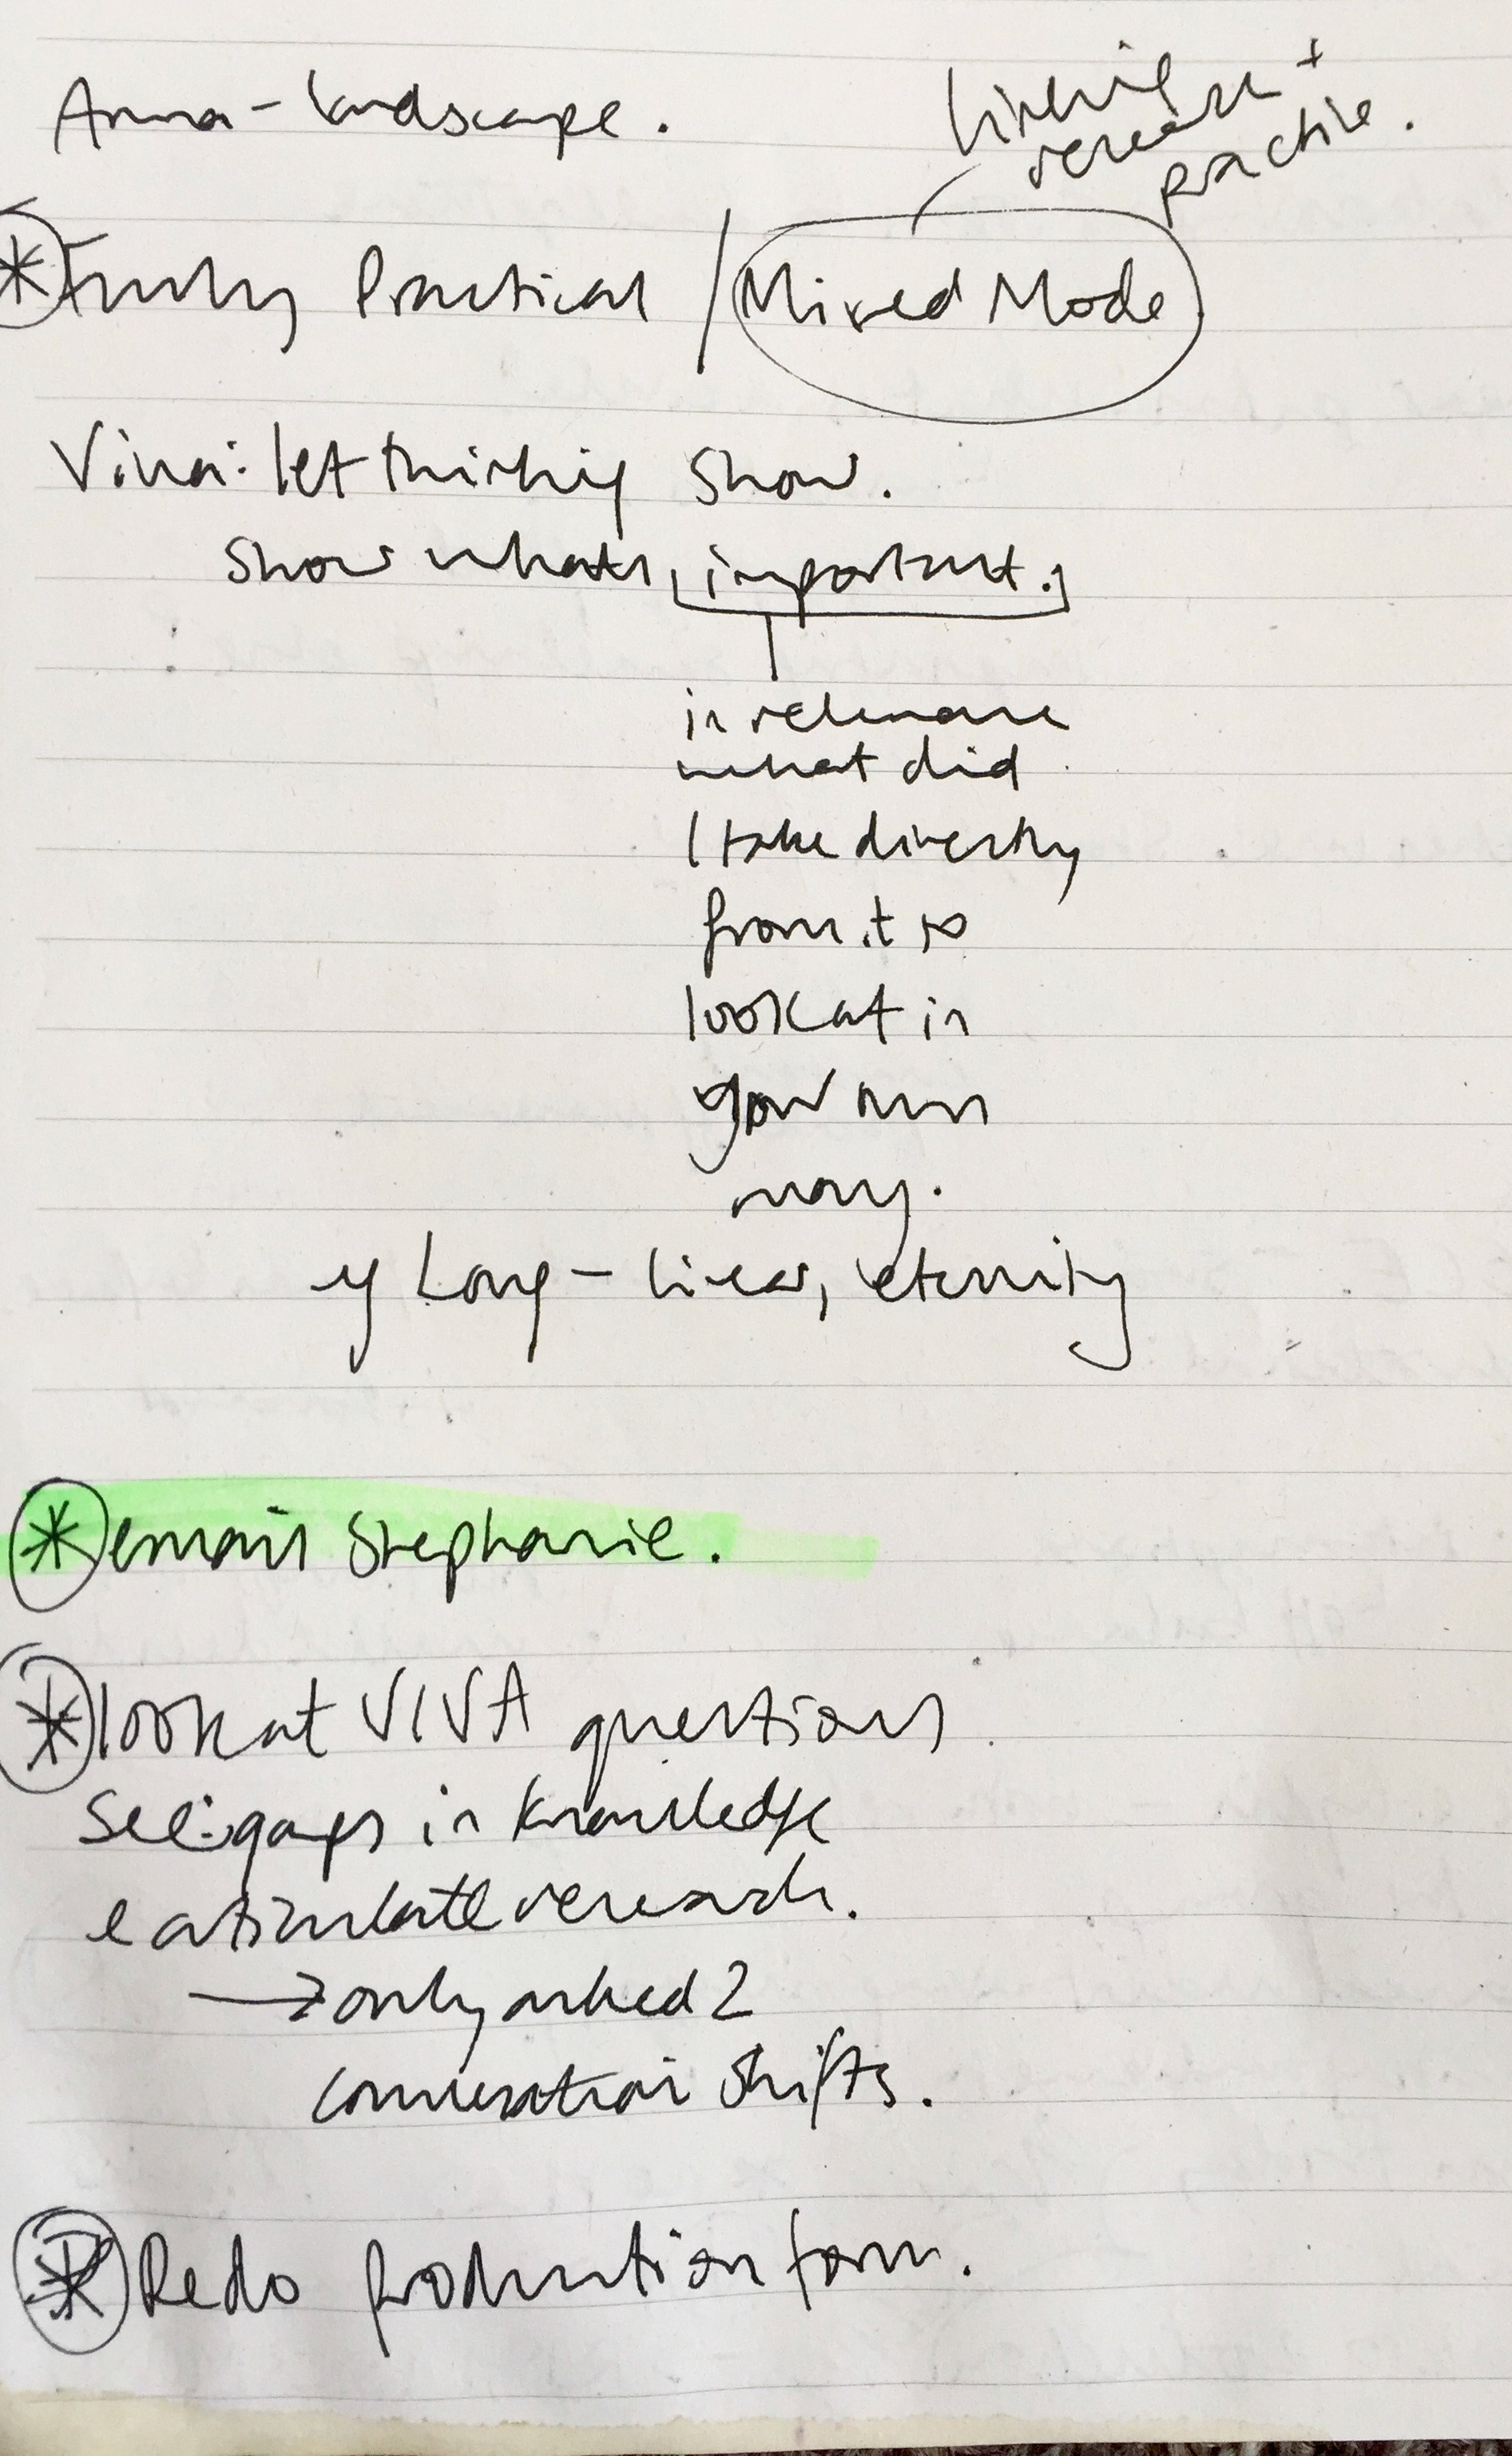 Anna - landscape.
linking
research +
practice.
* Fully Practical / Mixed Mode
Viva: let thinking show.
show whats important.
is relevance
what did
I take directly
from it to
look at in
your own
way.
eg Long - linear, eternity
* email Stephanie.
* look at VIVA questions
See: gaps in knowledge
& articulate research.
→ only asked 2
conversation shifts.
* Redo production form.